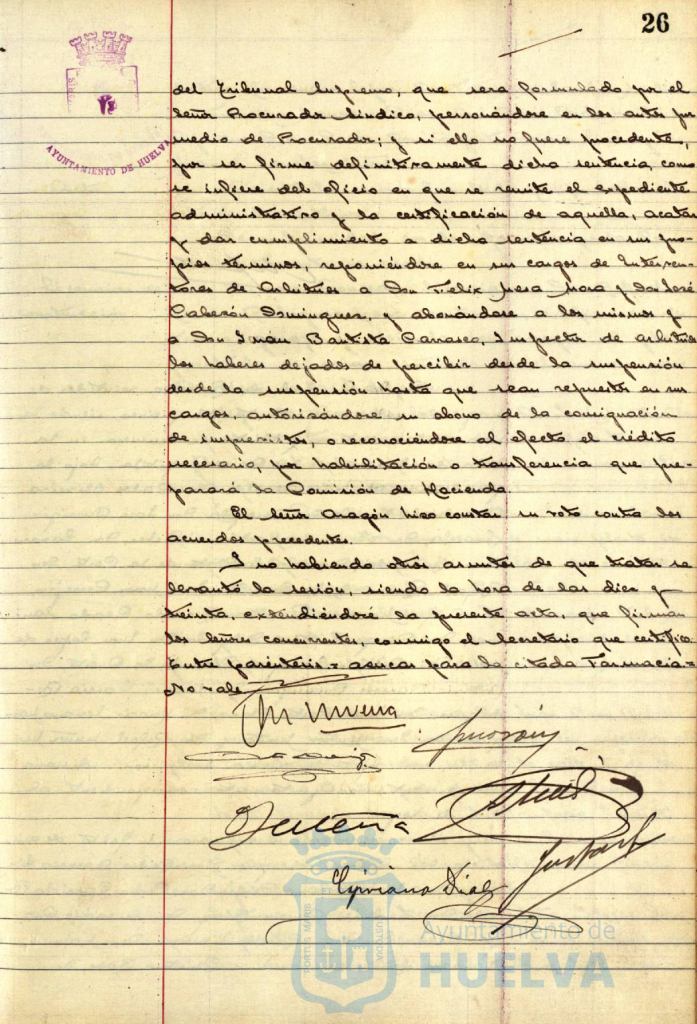 26
AYUNTAMIENTO DE HUELVA
del Tribunal Supremo, que sera formulado por el
Señor Procurador Síndico, personándose en los autos por
medio de Procurador; y si ello no fuere procedente,
por ser firme definitivamente dicha sentencia, como
se infiere del oficio en que se remite el expediente
administrativo y la certificación de aquella, acatar
y dar cumplimiento a dicha sentencia en sus pro-
pios términos, reponiéndose en sus cargos de Interven-
tores de Arbitrios a Don Felix Mesa Mora y Don José
Caberón Dominguez, y abonándose a los mismos y
a Don Juán Bautista Carrasco, Inspector de arbitrios
los haberes dejados de percibir desde la suspensión
desde la suspensión hasta que sean repuestos en sus
cargos, autorizándose su abono de la consignación
de imprevistos, o reconociéndose al efecto el crédito
necesario, por habilitación o transferencia que pre-
parará la Comisión de Hacienda.
El Señor Aragón hizo constar su voto contra los
acuerdos precedentes.
Y no habiendo otros asuntos de que tratar se
levantó la sesión, siendo la hora de las diez y
treinta, extendiéndose la presente acta, que firman
los Señores concurrentes, conmigo el Secretario que certifico.
Entre parentesis = azucar para la citada Farmacia =
No vale
Cipriano Diaz
Ayuntamiento de
HUELVA